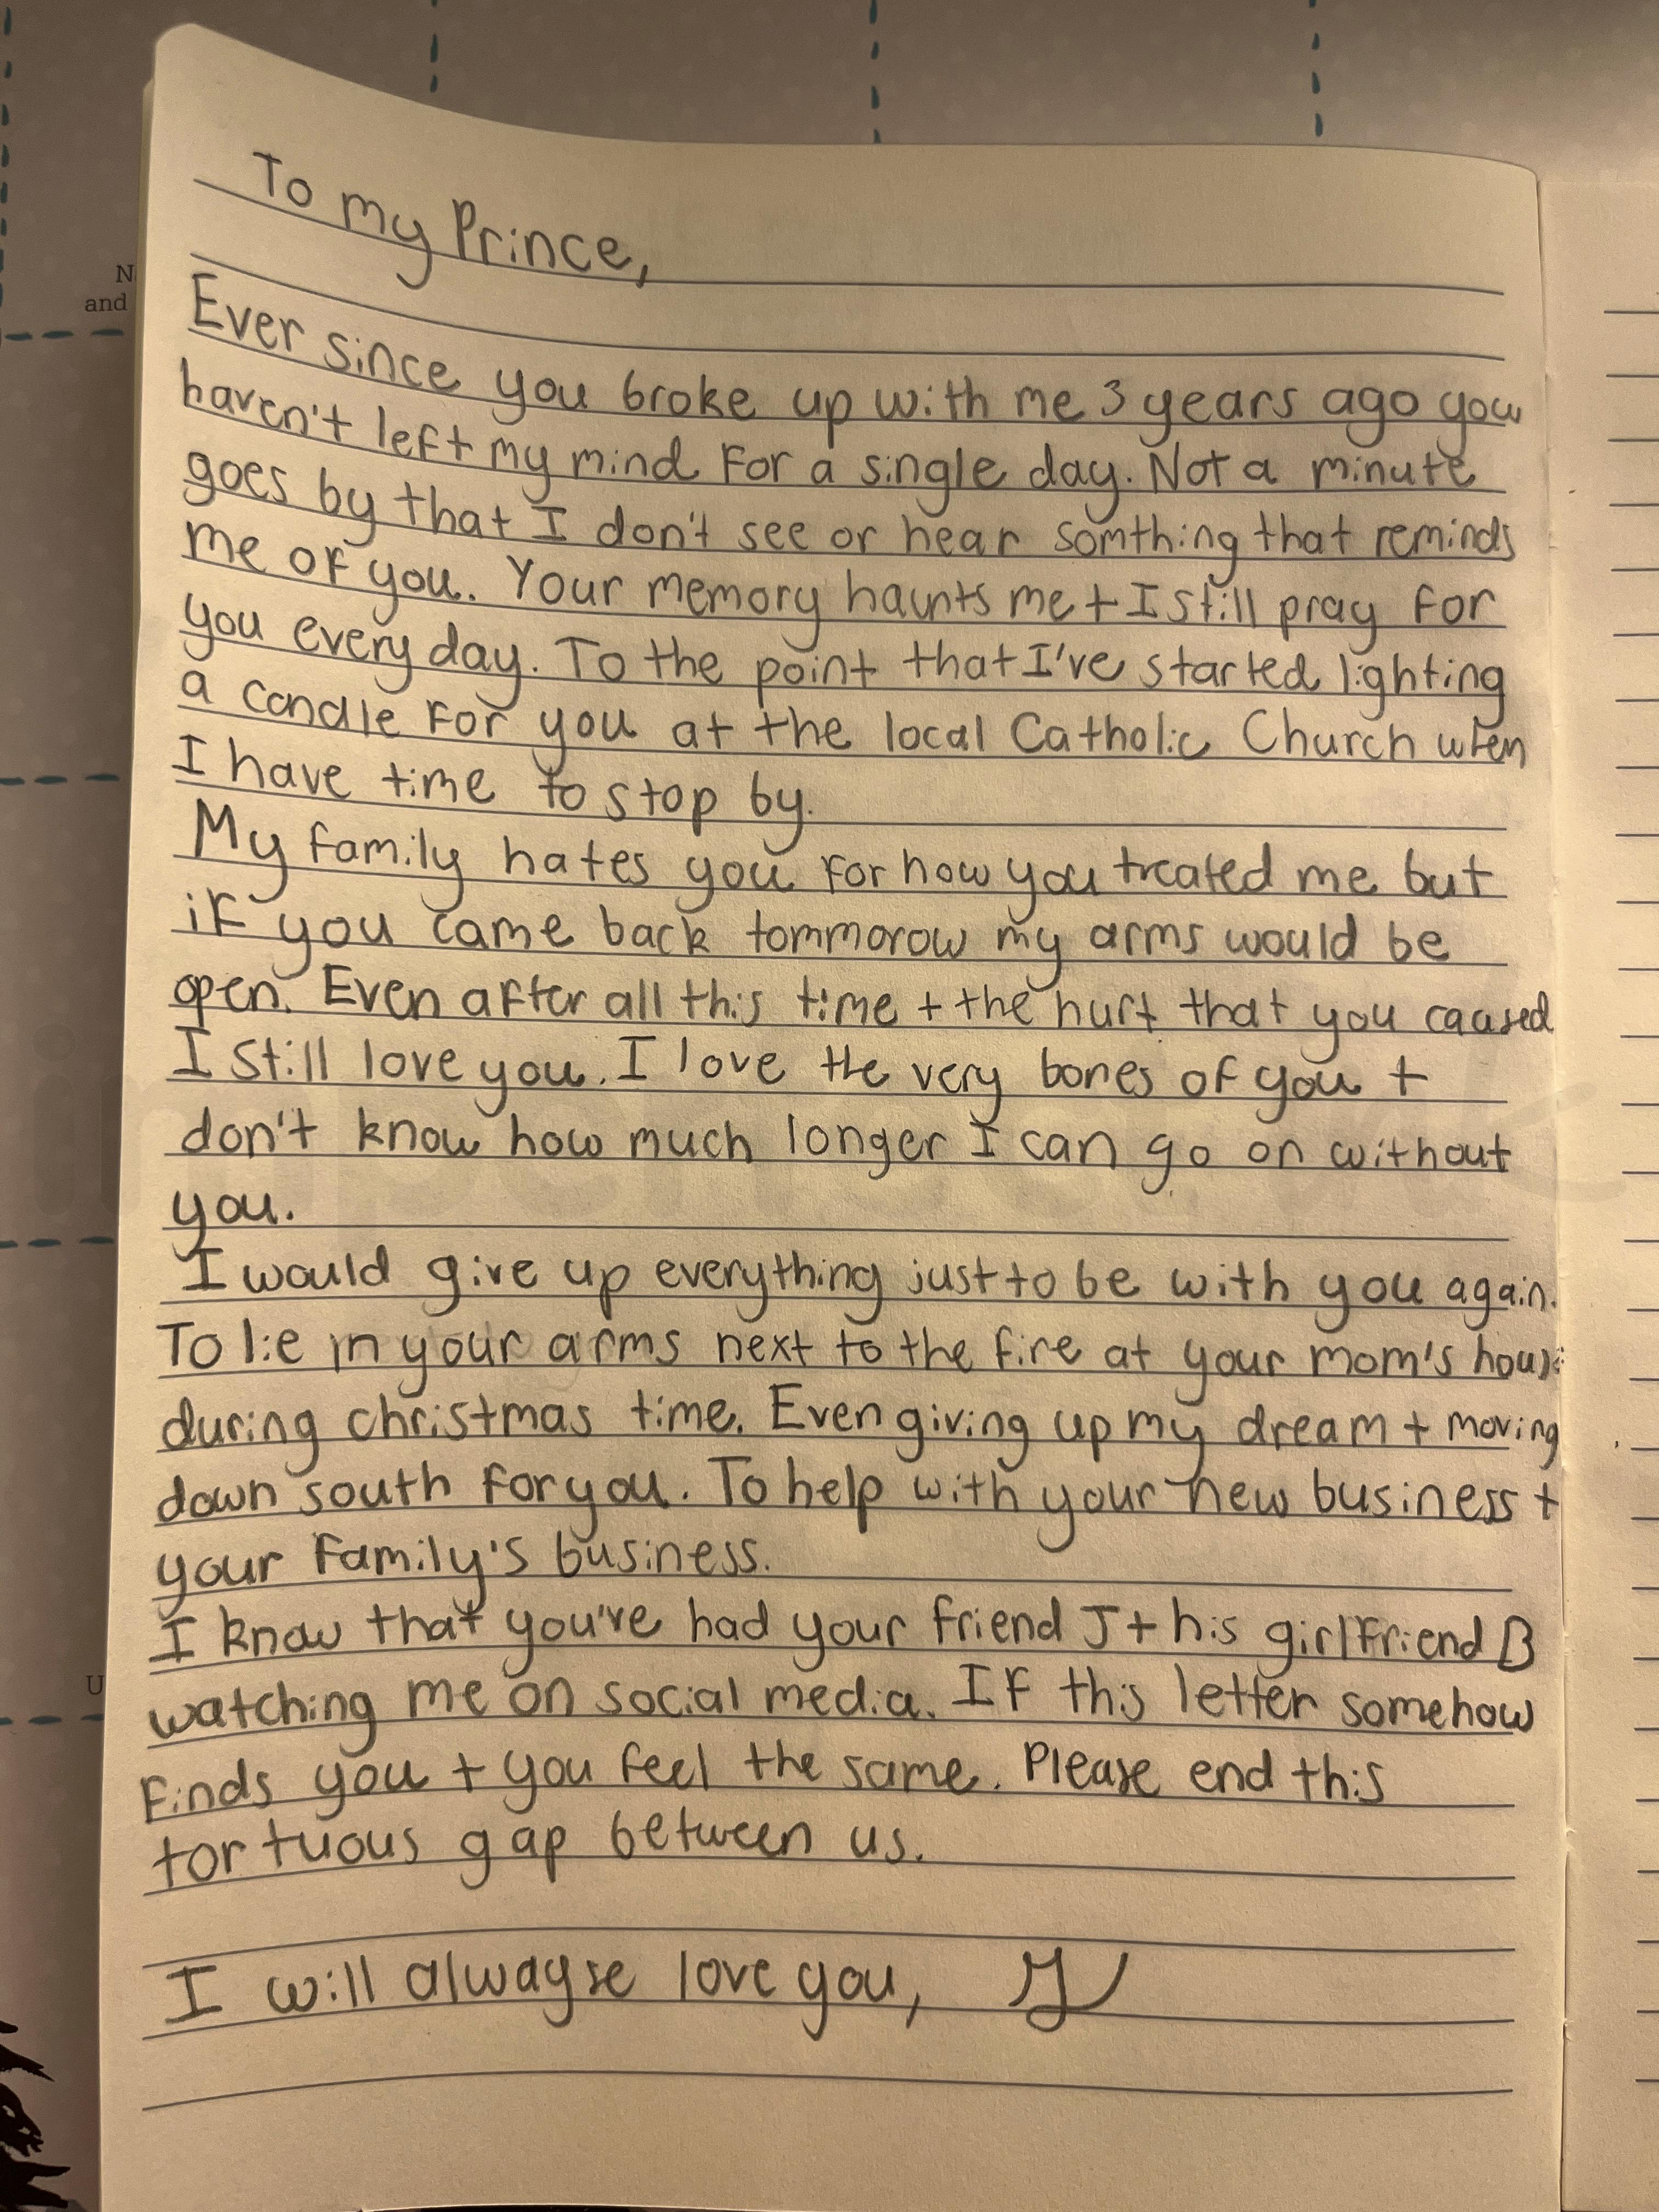 N
and
To my Prince,
Ever since you broke up with me 3 years ago you
haven't left my mind for a single day. Not a minute
goes by that I don't see or hear somthing that reminds
me of you. Your memory haunts me + I still pray for
you every day. To the point that I've started lighting
a candle for you at the local Catholic Church when
I have time to stop by.
My family hates you for how you treated me but
if you came back tommorow my arms would be
open. Even after all this time + the hurt that you caused
I still love you. I love the very bones of you +
don't know how much longer I can go on without
you.
I would give up everything just to be with you again.
To lie in your arms next to the fire at your mom's house
during christmas time. Even giving up my dream + moving
down south for you. To help with your new business +
your family's business.
I know that you've had your friend J + his girlfriend B
watching me on social media. If this letter somehow
finds you + you feel the same. Please end this
tortuous gap between us.
I will alwayse love you,
U